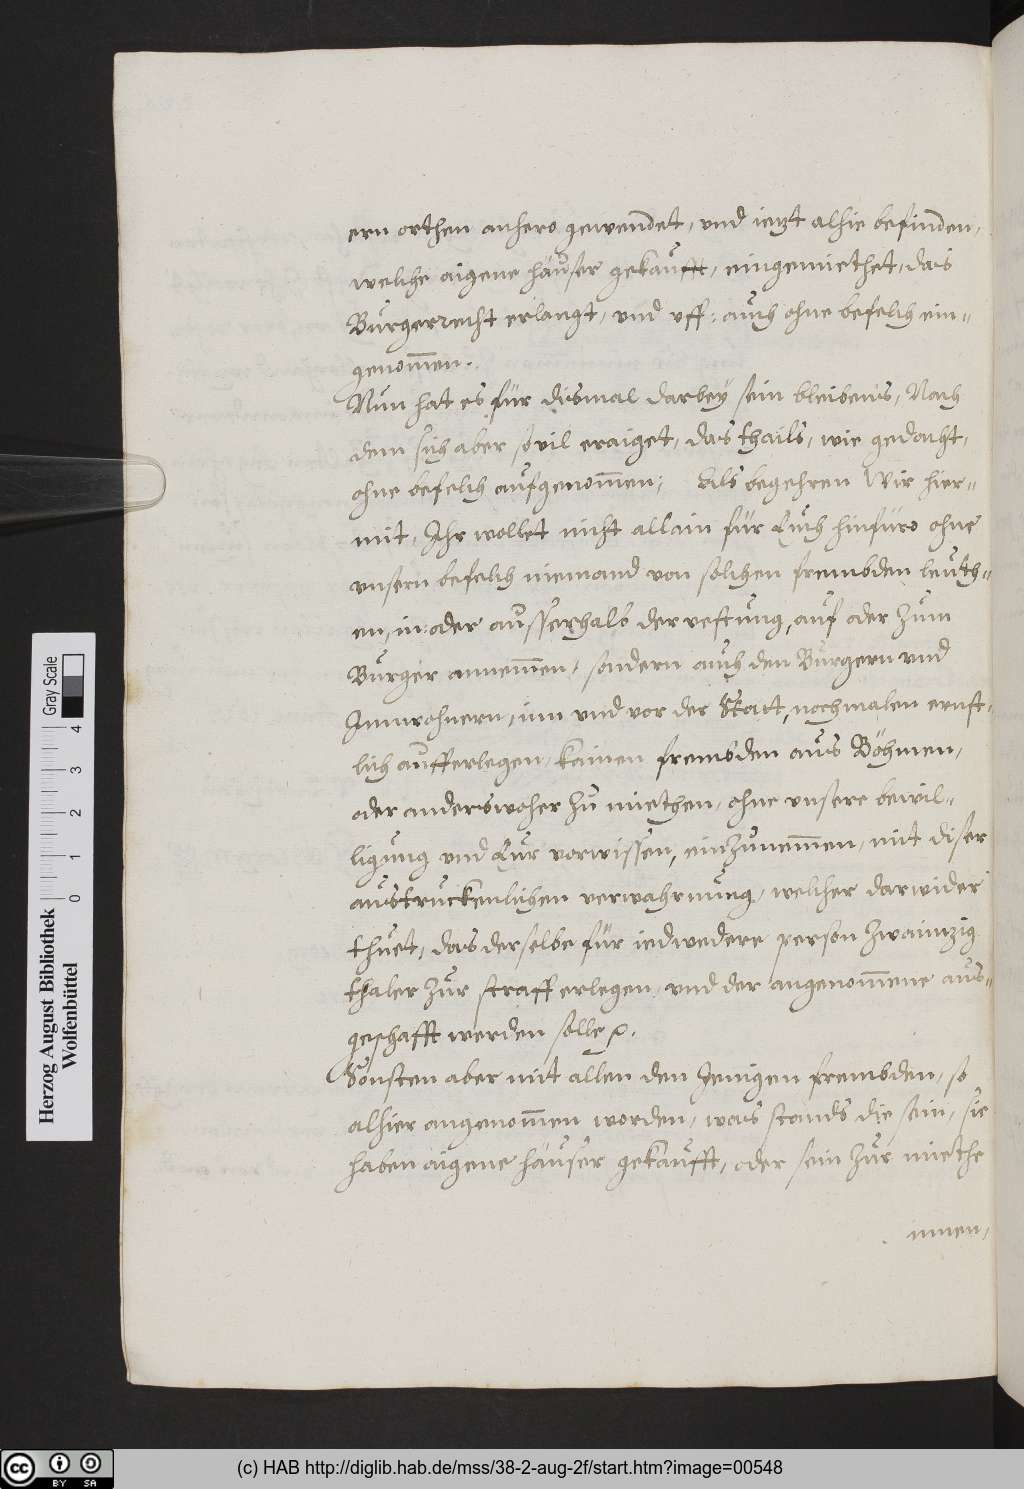 ern orthen anhero gewendet, vnd ietzt alhie befinden,
welche aigene häuser gekaufft, eingemiethet, das
Burgerrecht erlangt, vnd vff: auch ohne befelch ein-
genom̄en.
Nun hat es für dismal darbey sein bleibens, Nach
dem sich aber sovil eraiget, das thails, wie gedacht,
ohne befelch aufgenom̄en; Als begehren Wir hier-
mit, Ihr wollet nicht allain für Euch hinfüro ohne
vnsern befelch niemand von solchen frembden leuth-
en, in: oder ausserhalb der vestung, auf oder zum
Burger annem̄en, sondern auch den Burgern vnd
Innwohnern, inn vnd vor der Statt, nochmalen ernst-
lich aufferlegen, kainen frembden aus Böhmen,
oder anderswoher zu miethen, ohne vnsere bewil-
ligung vnd Eur vorwissen, einzunem̄en, mit diser
austruckenlichen verwahrnung, welcher darwider
thuet, das derselbe für iedwedere person zwainzig
thaler zur straff erlegen, vnd der angenom̄ene aus-
geschafft werden solle ꝛc.
Sonsten aber mit allen den Jenigen frembden, so
alhier angenom̄en worden, was stands die sein, sie
haben aigene häuser gekaufft, oder sein zur miethe
innen,
Gray Scale
0 1 2 3 4
Herzog August Bibliothek
Wolfenbüttel
cc BY SA
(c) HAB http://diglib.hab.de/mss/38-2-aug-2f/start.htm?image=00548